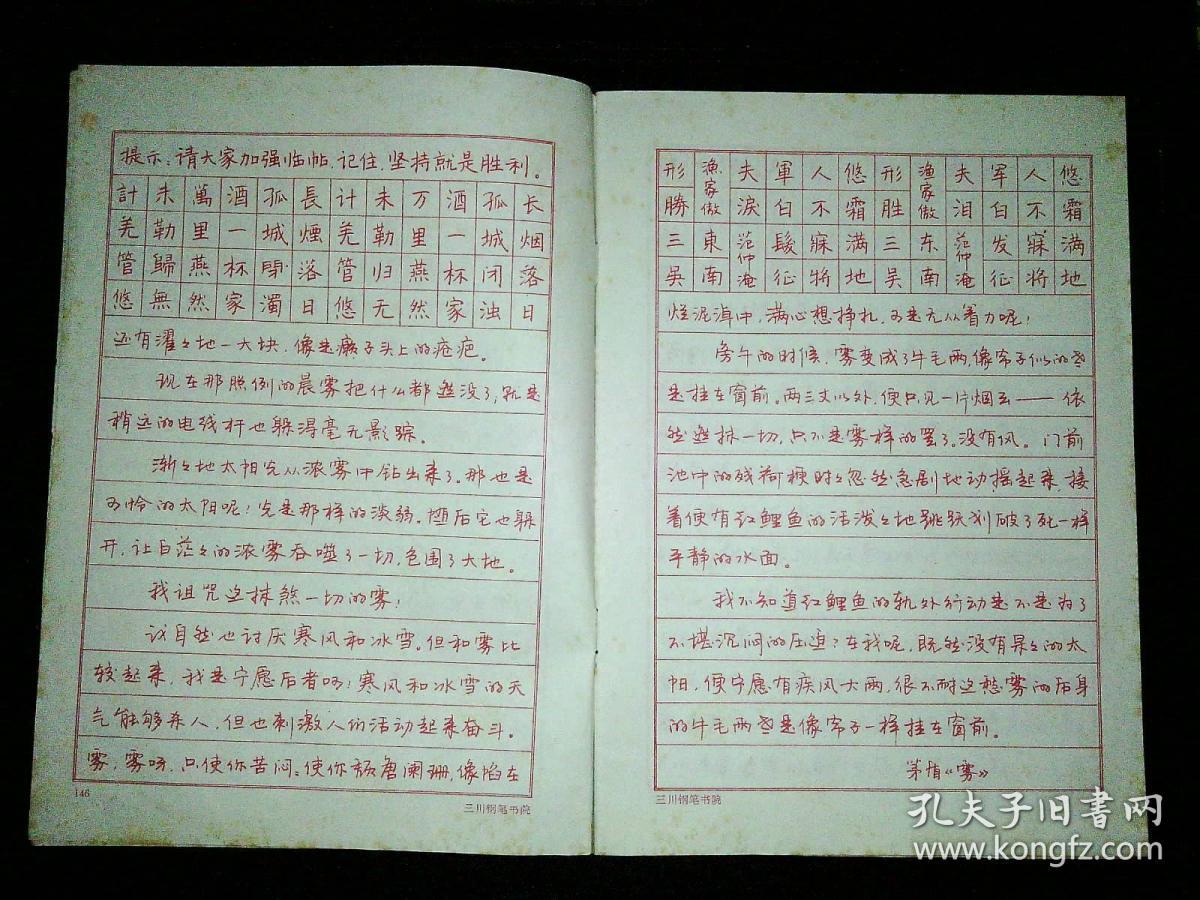 提示：请大家加强临帖，记住，坚持就是胜利。
計未萬酒孤長计未万酒孤长
羌勒里一城煙羌勒里一城烟
管歸燕杯閉落管归燕杯闭落
悠無然家濁日悠无然家浊日
还有濯々地一大块，像是癞子头上的疮疤。
现在那照例的晨雾把什么都遮没了，就是
稍远的电线杆也躲得毫无影踪。
渐々地太阳光从浓雾中钻出来了。那也是
可怜的太阳呢！光是那样的淡弱。随后它也躲
开，让白茫々的浓雾吞噬了一切，包围了大地。
我诅咒这抹煞一切的雾！
我自然也讨厌寒风和冰雪。但和雾比
较起来，我是宁愿后者呵！寒风和冰雪的天
气能够杀人，但也刺激人们活动起来奋斗。
雾，雾呀，只使你苦闷。使你颓唐阑珊，像陷在
146
三川钢笔书院
形漁家傲夫軍人悠形渔家傲夫军人悠
勝淚白不霜胜泪白不霜
三東范仲淹髮寐满三东范仲淹发寐满
吴南征將地吴南征将地
烂泥淖中，满心想挣扎，可是无从着力呢！
旁午的时候，雾变成了牛毛雨，像帘子似的老
是挂在窗前。两三丈以外，便只见一片烟云——依
然遮抹一切，只不是雾样的罢了。没有风。门前
池中的残荷梗时々忽然急剧地动摇起来，接
着便有红鲤鱼的活泼々地跳跃划破了死一样
平静的水面。
我不知道红鲤鱼的轨外行动是不是为了
不堪沉闷的压迫？在我呢，既然没有杲々的太
阳，便宁愿有疾风大雨，很不耐这愁雾的后身
的牛毛雨老是像帘子一样挂在窗前。
茅盾《雾》
三川钢笔书院
孔夫子旧书网
www.kongfz.com